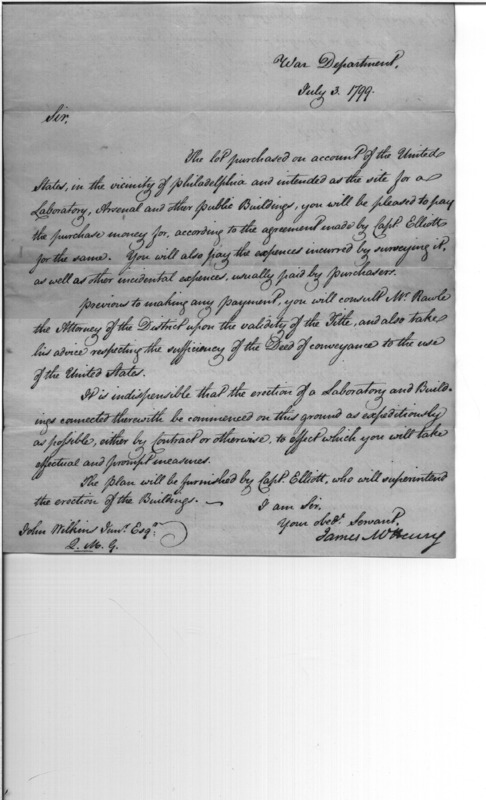 War Department,
July 3. 1799.
Sir,
The lot purchased on account of the United
States, in the vicinity of Philadelphia and intended as the site for a
Laboratory, Arsenal and other Public Buildings, you will be pleased to pay
the purchase money for, according to the agreement made by Capt. Elliott
for the same. You will also pay the expences incurred by surveying it,
as well as other incidental expences, usually paid by purchasers.
Previous to making any payment, you will consult Mr. Rawle
the Attorney of the District upon the validity of the Title, and also take
his advice respecting the sufficiency of the Deed of conveyance to the use
of the United States.
It is indispensible that the erection of a Laboratory and Build-
ings connected therewith be commenced on this ground as expeditiously
as possible, either by contract or otherwise, to effect which you will take
effectual and prompt measures.
The plan will be furnished by Capt. Elliott, who will superintend
the erection of the Buildings. —
I am Sir,
Your Obedt. Servant,
James McHenry
John Wilkins Junr. Esqr.
Q. M. G.